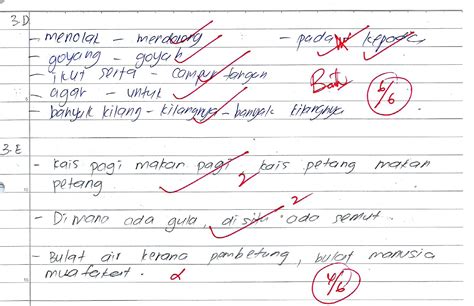 3.D
- menolak - mendorong - pada kepada
- goyang - goyah
- ikut serta - campur tangan
- agar - untuk
- banyak kilang - kilangnya - banyak kilangnya
6/6
3.E
- Kais pagi makan pagi, kais petang makan
petang
2
- Di mana ada gula, di situ ada semut.
2
- Bulat air kerana pembetung, bulat manusia
muafakat.
4/6